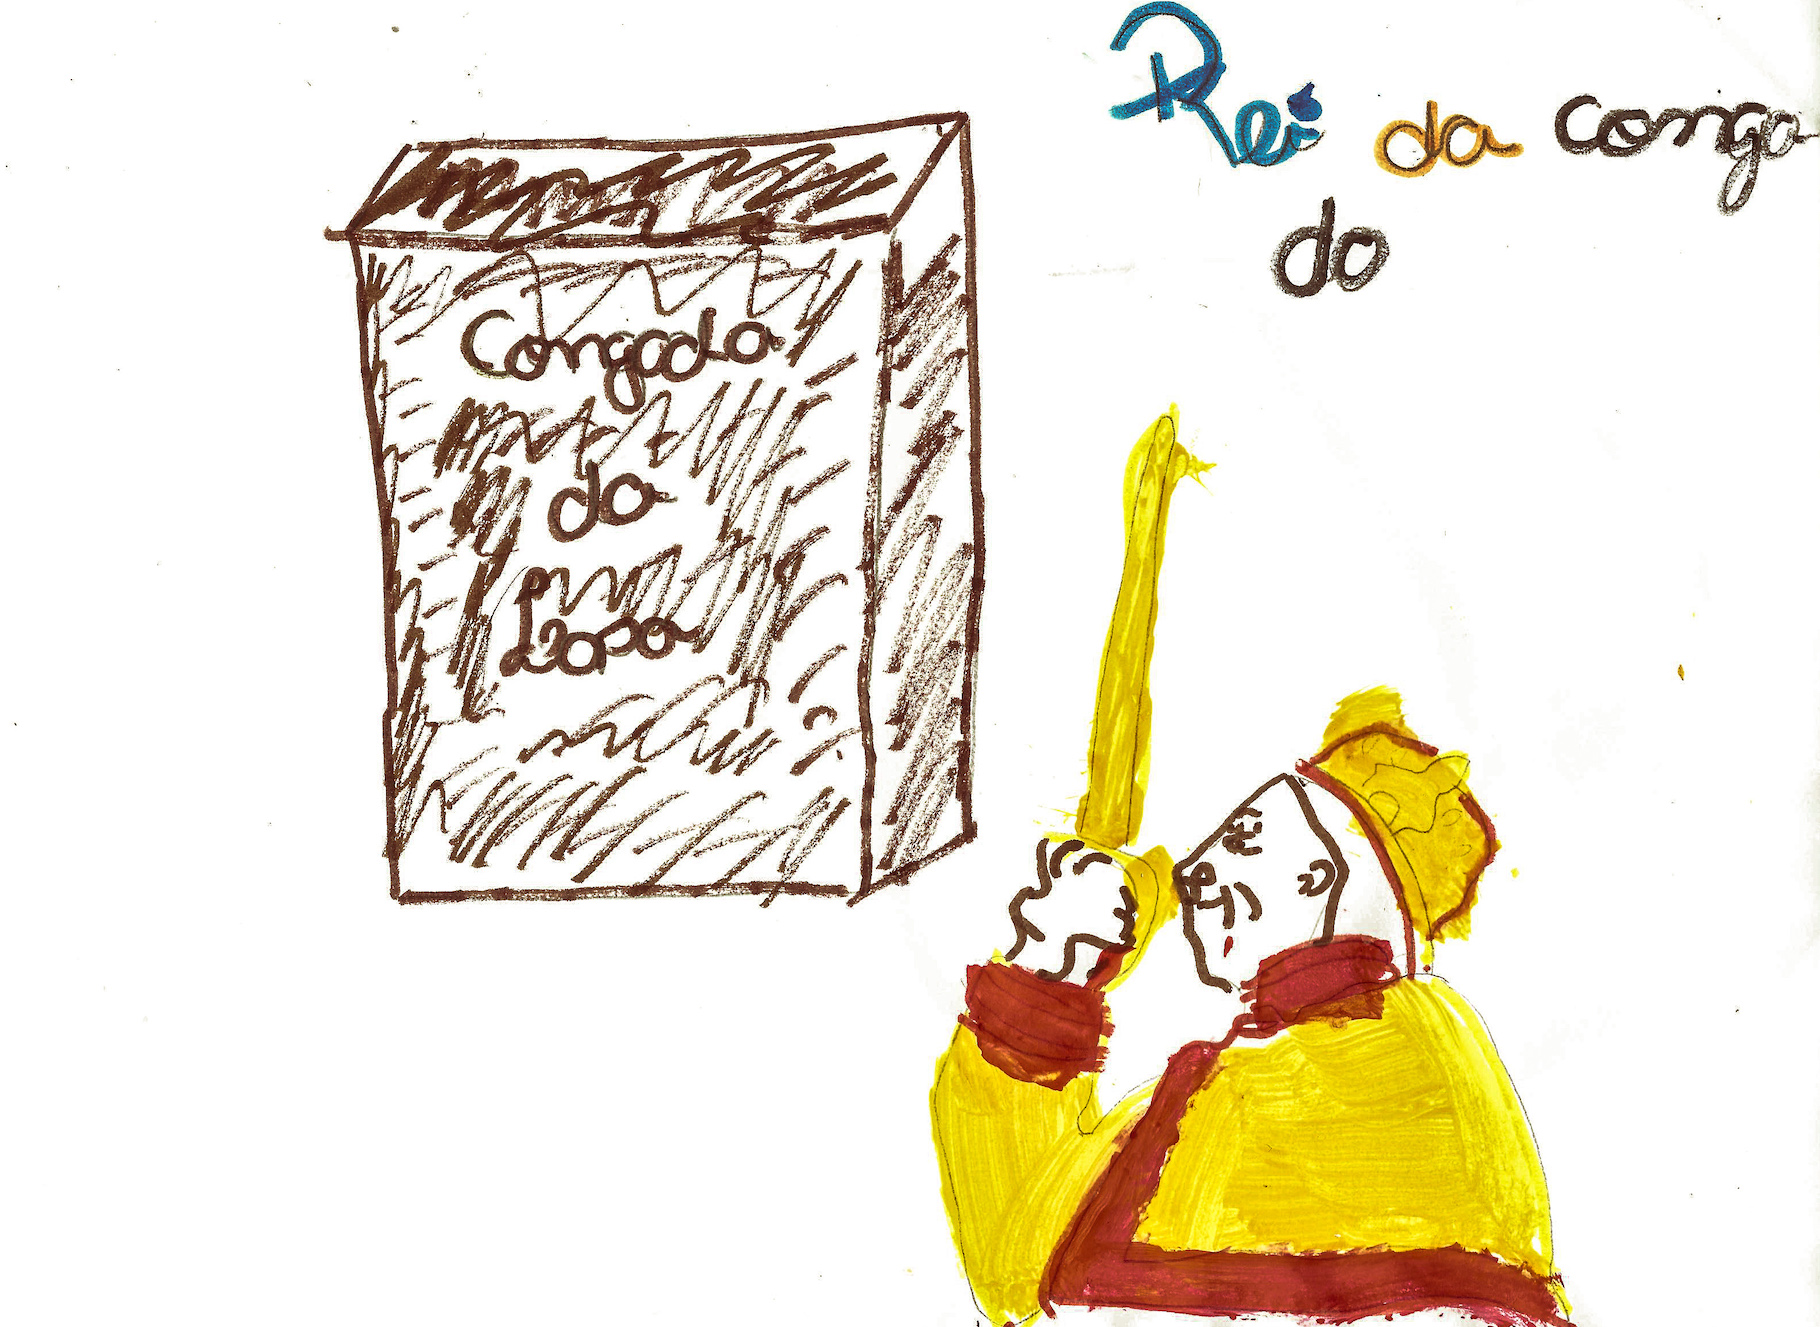 Rei da conga
do
Congada
da
Lapa